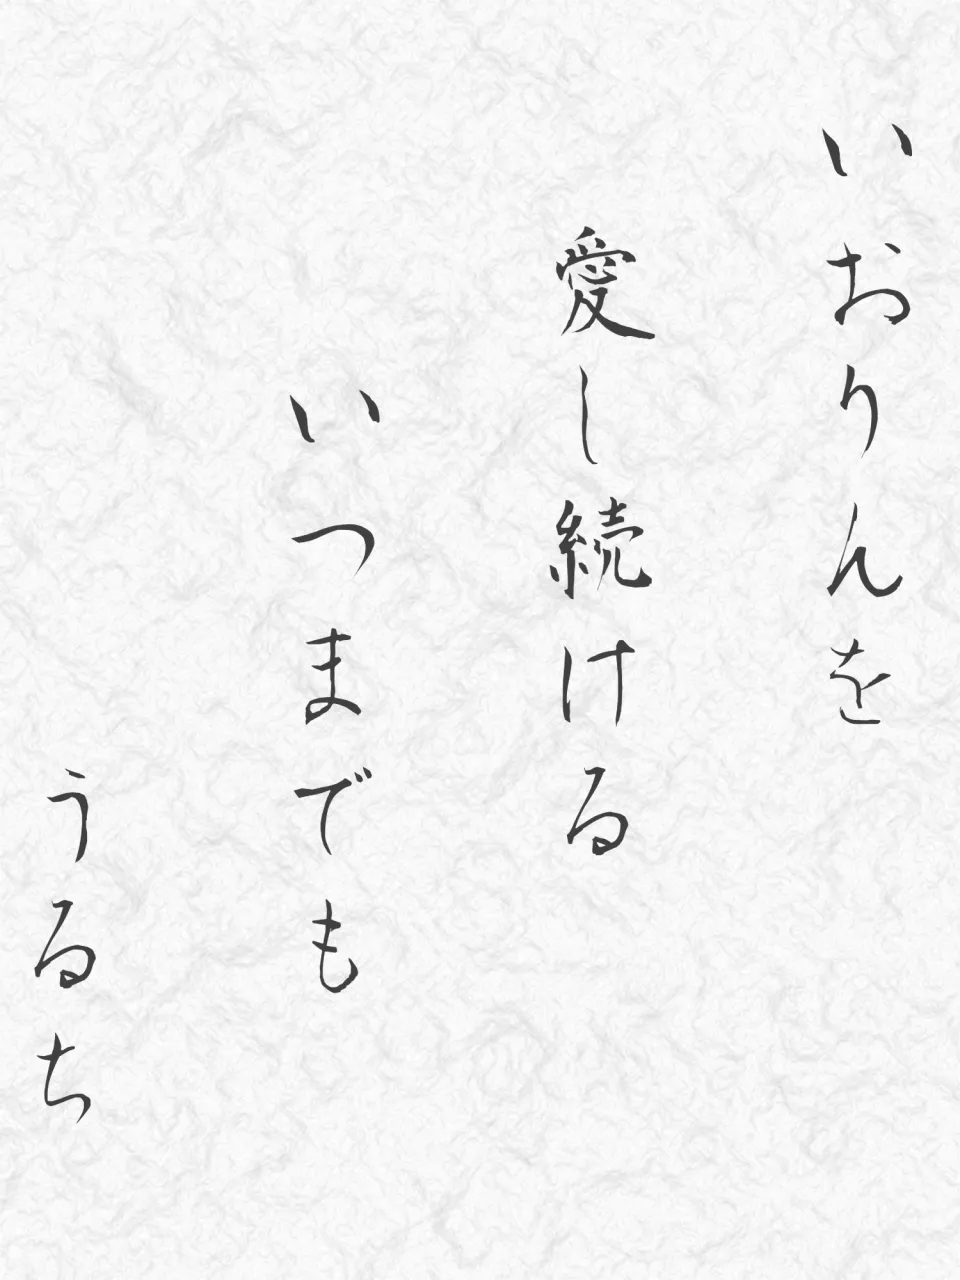 いおりんを
愛し続ける
いつまでも
うるち